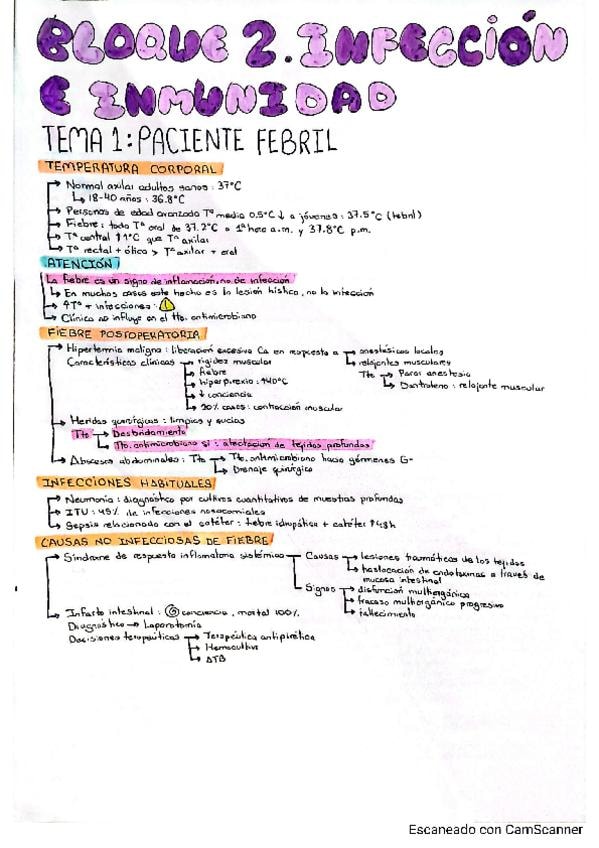 BLOQUE 2. INFECCIÓN
E INMUNIDAD
TEMA 1: PACIENTE FEBRIL
TEMPERATURA CORPORAL
→ Normal axilar adultos sanos: 37ºC
↳ 18-40 años: 36.8ºC
→ Personas de edad avanzada Tª media 0.5ºC ↓ a jóvenes: 37.5ºC (febril)
→ Fiebre: toda Tª oral de 37.2ºC a 1ª hora a.m. y 37.8ºC p.m.
→ Tª central ↑1ºC que Tª axilar
→ Tª rectal + ótica > Tª axilar + oral
ATENCIÓN
La fiebre es un signo de inflamación, no de infección
↳ En muchos casos este hecho es la lesión hística, no la infección
→ + infecciones: ⚠
→ Clínica no influye en el tto. antimicrobiano
FIEBRE POSTOPERATORIA
→ Hipertermia maligna: liberación excesiva Ca en respuesta a → anestésicos locales
↳ relajantes musculares
Características clínicas → rigidez muscular
Tto → Parar anestesia
→ fiebre
→ hiperpirexia: ↑40ºC
↳ Dantroleno: relajante muscular
→ ↓ conciencia
→ 90% casos: contracción muscular
→ Heridas quirúrgicas: limpias y sucias
Tto → Desbridamiento
↳ Tto. antimicrobiano si: afectación de tejidos profundos
→ Abscesos abdominales: Tto → Tto. antimicrobiano hacia gérmenes G-
↳ Drenaje quirúrgico
INFECCIONES HABITUALES
→ Neumonía: diagnóstico por cultivos cuantitativos de muestras profundas
→ ITU: 45% de infecciones nosocomiales
→ Sepsis relacionada con el catéter: fiebre idiopática + catéter ↑48h
CAUSAS NO INFECCIOSAS DE FIEBRE
→ Síndrome de respuesta inflamatoria sistémica → Causas → lesiones traumáticas de los tejidos
↳ traslocación de endotoxinas a través de
mucosa intestinal
Signos → disfunción multiorgánica
→ fracaso multiorgánico progresivo
↳ fallecimiento
→ Infarto intestinal: conciencia, mortal 100%
Diagnóstico → Laparotomía
Decisiones terapéuticas → Terapéutica antipirética
→ Hemocultivo
→ ATB
Escaneado con CamScanner